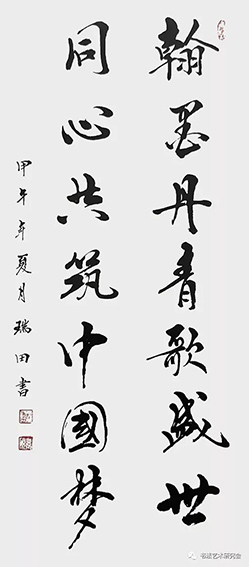 翰墨丹青歌盛世
同心共筑中國梦
甲午年夏月瑞田書
书法艺术研究会